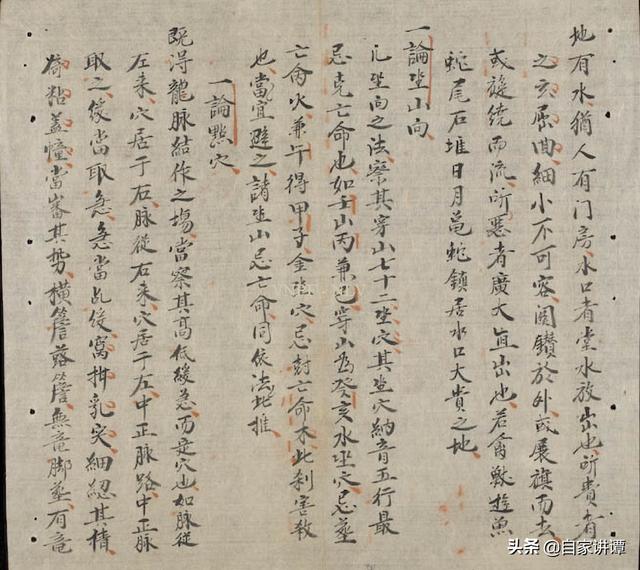 地有水猶人有门房水口者堂水放出也所貴者
之玄屈曲細小不可容闊鑽於外或展旗而去
或旋繞而流所惡者廣大直出也若禽獸遊魚
蛇尾石堆日月龟蛇鎮居水口大貴之地
一論坐山向
凡坐向之法察其穿山七十二坐穴其坐穴納音五行最
忌克亡命也如壬山丙兼巳穿山為癸亥水坐穴忌塟
亡命火兼午得甲子金坐穴忌封亡命木此刹害殺
也當宜避之諸坐山忌亡命同依法此推
一論點穴
既得龍脉結作之場當察其高低緩急而定穴也如脉從
左来穴居于右脉從右来穴居于左中正脉路中正脉
取之緩當取急急當乩緩窩拑乳突細認其情
倚粘盖撞當審其势橫簷落簷無竜脚塟有竜
头条 @自家讲谭